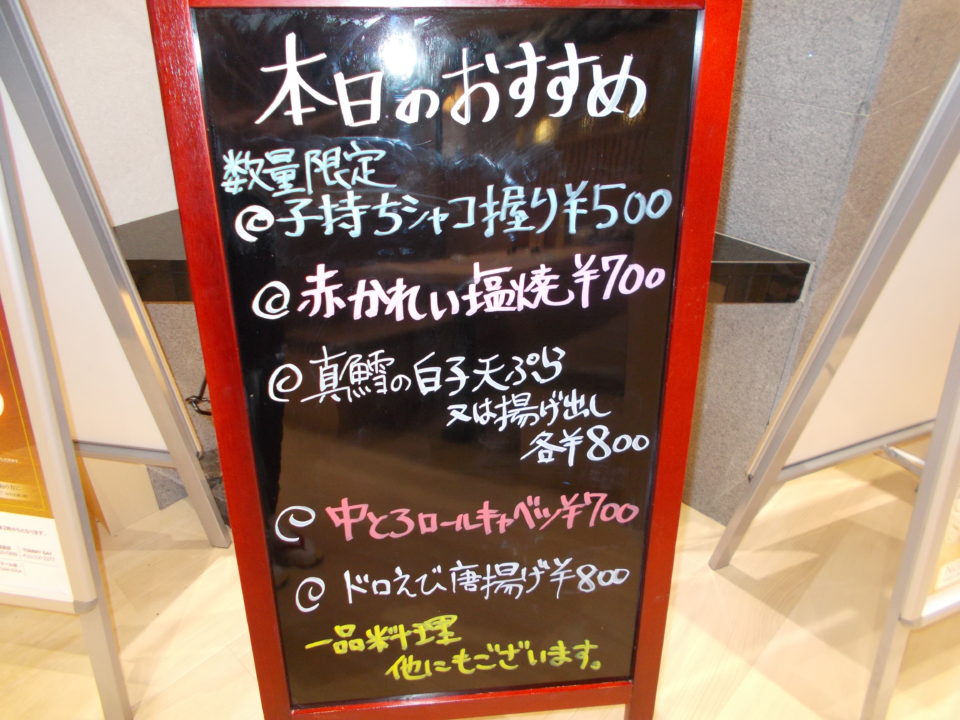 本日のおすすめ
数量限定
@子持ちシャコ握り¥500
@赤かれい塩焼¥700
@真鱈の白子天ぷら
又は揚げ出し
各¥800
@中とろロールキャベツ¥700
@ドロえび唐揚げ¥800
一品料理
他にもございます。